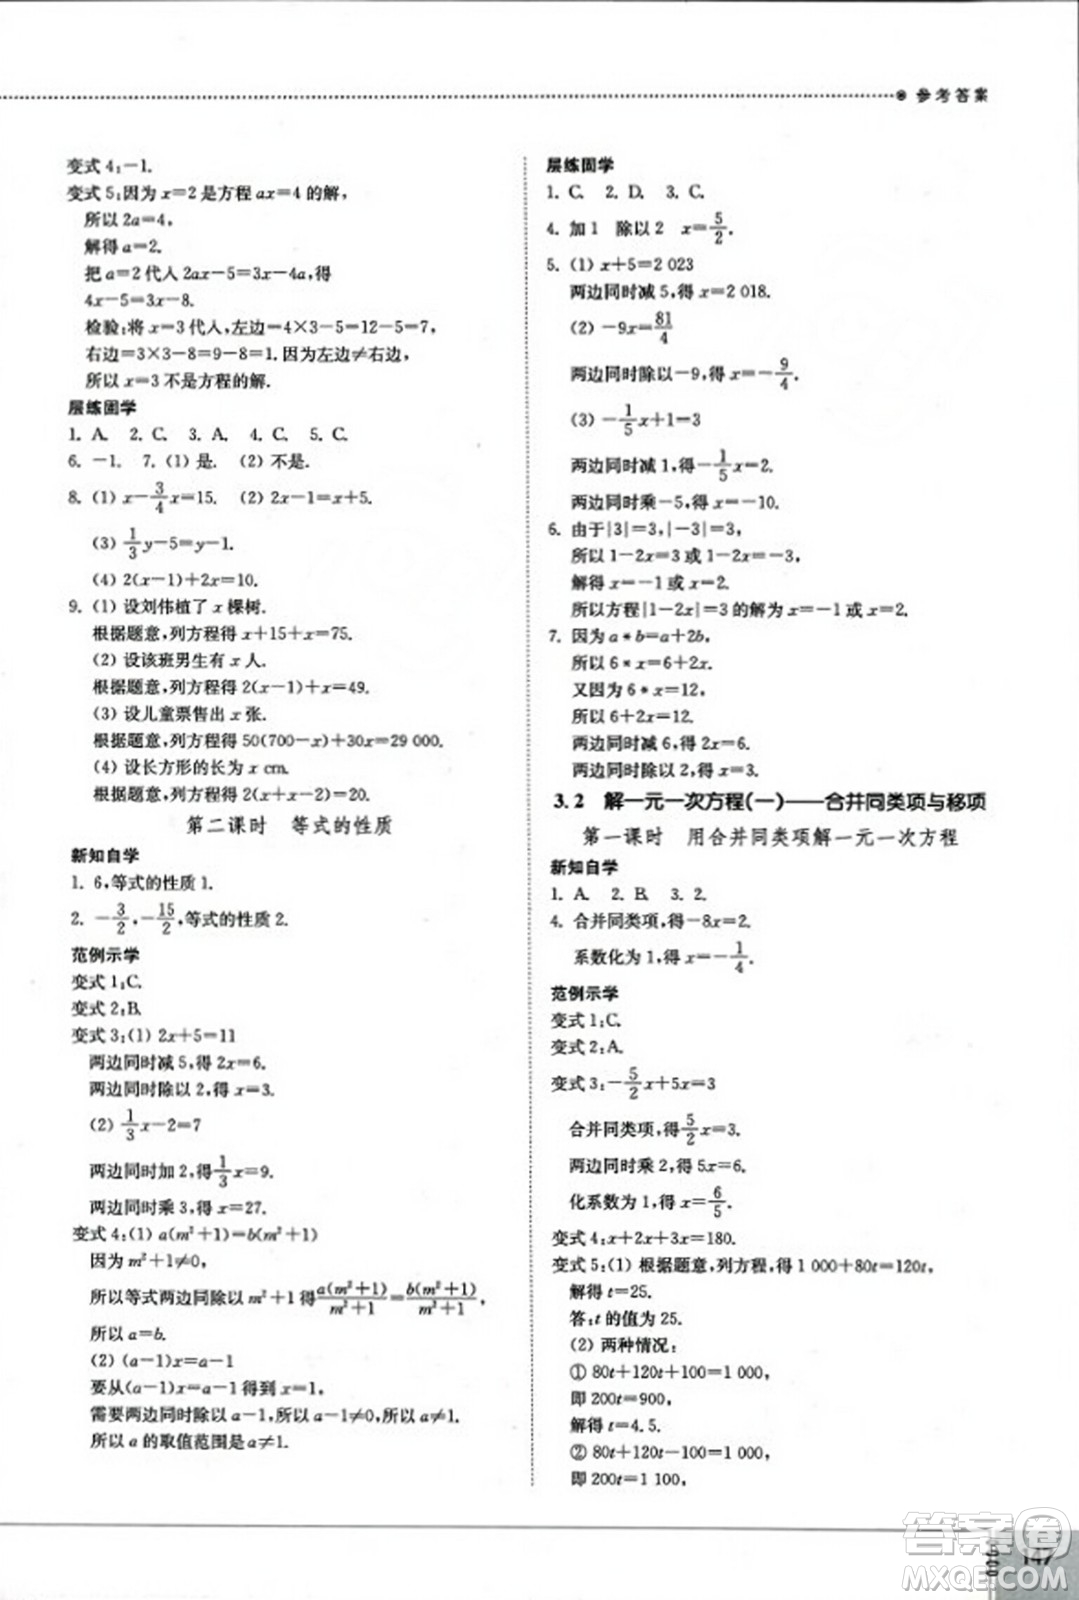 参考答案
变式 4:－1.
变式 5:因为 x＝2 是方程 ax＝4 的解，
所以 2a＝4，
解得 a＝2.
把 a＝2 代入 2ax－5＝3x－4a，得
4x－5＝3x－8.
检验:将 x＝3 代入，左边＝4×3－5＝12－5＝7，
右边＝3×3－8＝9－8＝1. 因为左边≠右边，
所以 x＝3 不是方程的解.
层练固学
1. A. 2. C. 3. A. 4. C. 5. C.
6. －1. 7. (1) 是. (2) 不是.
8. (1) x－3/4x＝15. (2) 2x－1＝x＋5.
(3) 1/3y－5＝y－1.
(4) 2(x－1)＋2x＝10.
9. (1) 设刘伟植了 x 棵树.
根据题意，列方程得 x＋15＋x＝75.
(2) 设该班男生有 x 人.
根据题意，列方程得 2(x－1)＋x＝49.
(3) 设儿童票售出 x 张.
根据题意，列方程得 50(700－x)＋30x＝29 000.
(4) 设长方形的长为 x cm.
根据题意，列方程得 2(x＋x－3)＝24.
第二课时 等式的性质
新知自学
1. 6，等式的性质 1.
2. －3/2，－15/2，等式的性质 2.
范例示学
变式 1:C.
变式 2:B.
变式 3:(1) 2x＋5＝11
两边同时减 5，得 2x＝6.
两边同时除以 2，得 x＝3.
(2) 1/3x－2＝7
两边同时加 2，得1/3x＝9.
两边同时乘 3，得 x＝27.
变式 4:(1) a(m²＋1)＝b(m²＋1)
因为 m²＋1≠0，
所以等式两边同除以 m²＋1 得a(m²＋1)/m²＋1＝b(m²＋1)/m²＋1，
所以 a＝b.
(2) (a－1)x＝a－1
要从(a－1)x＝a－1 得到 x＝1，
需要两边同时除以 a－1，所以 a－1≠0，所以 a≠1.
所以 a 的取值范围是 a≠1.
层练固学
1. C. 2. D. 3. C.
4. 加 1 除以 2 x＝5/2.
5. (1) x＋5＝2 023
两边同时减 5，得 x＝2 018.
(2) －9x＝81/4
两边同时除以－9，得 x＝－9/4.
(3) －1/5x＋1＝3
两边同时减 1，得－1/5x＝2.
两边同时乘－5，得 x＝－10.
6. 由于|3|＝3，|－3|＝3，
所以 1－2x＝3 或 1－2x＝－3，
解得 x＝－1 或 x＝2.
所以方程|1－2x|＝3 的解为 x＝－1 或 x＝2.
7. 因为 a * b＝a＋2b，
所以 6 * x＝6＋2x.
又因为 6 * x＝12，
所以 6＋2x＝12.
两边同时减 6，得 2x＝6.
两边同时除以 2，得 x＝3.
3.2 解一元一次方程(一)——合并同类项与移项
第一课时 用合并同类项解一元一次方程
新知自学
1. A. 2. B. 3. 2.
4. 合并同类项，得－8x＝2.
系数化为 1，得 x＝－1/4.
范例示学
变式 1:C.
变式 2:A.
变式 3:－5/2x＋5x＝3
合并同类项，得5/2x＝3.
两边同时乘 2，得 5x＝6.
化系数为 1，得 x＝6/5.
变式 4:x＋2x＋3x＝180.
变式 5:(1) 根据题意，列方程，得 1 000＋80t＝120t，
解得 t＝25.
答:t 的值为 25.
(2) 两种情况:
① 80t＋120t＋100＝1 000，
即 200t＝900，
解得 t＝4.5.
② 80t＋120t－100＝1 000，
即 200t＝1 100，
147
答案圈
MXQE.COM